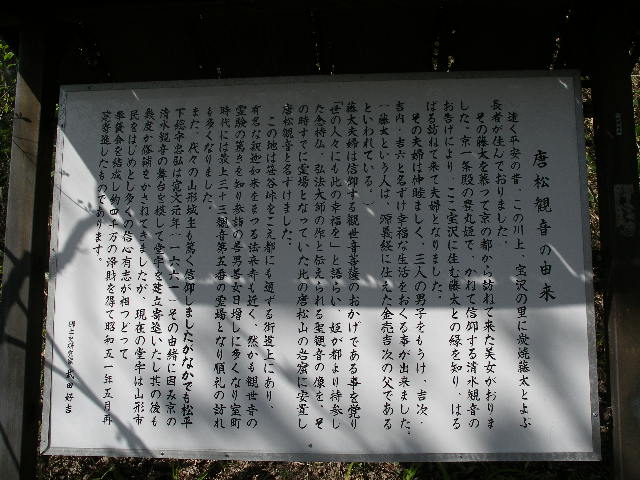 唐松観音の由来
遠く平安の昔、この川上、宝沢の里に炭焼藤太とよぶ
長者が住んでおりました。
その藤太を慕って京の都から訪ねて来た美女がおりま
した。京一条殿の豊丸姫で、かねて信仰する清水観音の
お告げにより、ここ宝沢に住む藤太との縁を知り、はる
ばる訪ねて来て夫婦となりました。
その夫婦は仲睦ましく、三人の男子をもうけ、吉次・
吉内・吉六と名ずけ幸福な生活をおくる事が出来ました。
(藤太という人は、源義経に仕えた金売吉次の父である
といわれている。)
藤太夫婦は信仰する観世音菩薩のおかげである事を覚り
「世の人々にも此の幸福を」と語らい、姫が都より持参し
た念持仏、弘法大師の作と伝えられる聖観音の像を、そ
の時すでに霊場となっていた此の唐松山の岩窟に安置し
唐松観音と名ずけました。
この地は笹谷峠をこえ都にも通ずる街道上にあり、
有名な釈迦如来をまつる法来寺も近く、然かも観世音の
霊験の篤きを知り参詣の善男善女日増しに多くなり室町
時代には最上三十三観音第五番の霊場となり順礼の訪れ
も多くなりました。
また、代々の山形城主も篤く信仰しましたがなかでも松平
下総守忠弘は寛文元年(一六六一)その由緒に因み京の
清水観音の舞台を模して堂宇を建立寄進いたし其の後も
幾度か修補をかさねてきましたが、現在の堂宇は山形市
民をはじめとし多くの信心有志が相つどって
奉賛会を結成し約四千万の浄財を得て昭和五一年五月再
建寄進したものであります。
武田好吉